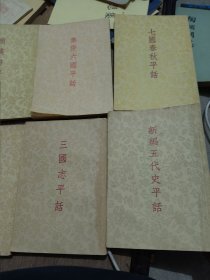 秦併六國平話
七國春秋平話
三國志平話
新編五代史平話